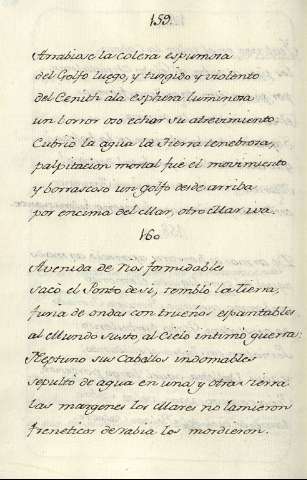 159.
Arrabiase la colera espumosa
del Golfo luego, y turgido y violento
del Cenith ála esphera luminosa
un orror oso echar su atrevimiento.
Cubrio la agua la Tierra tenebrosa,
palpitacion mortal fue el movimiento
y borrascoso un golfo desde arriba
por encima del Mar, otro Mar iva.
160
Avenida de rios formidables
sacó el Ponto de si, tembló la Tierra,
furia de ondas con truenos espantables
al Mundo susto, al Cielo intimó guerra:
Neptuno sus Caballos indomables
sepultó de agua en una y otra sierra
las margenes los Mares no lamieron
freneticos de rabia los mordieron.